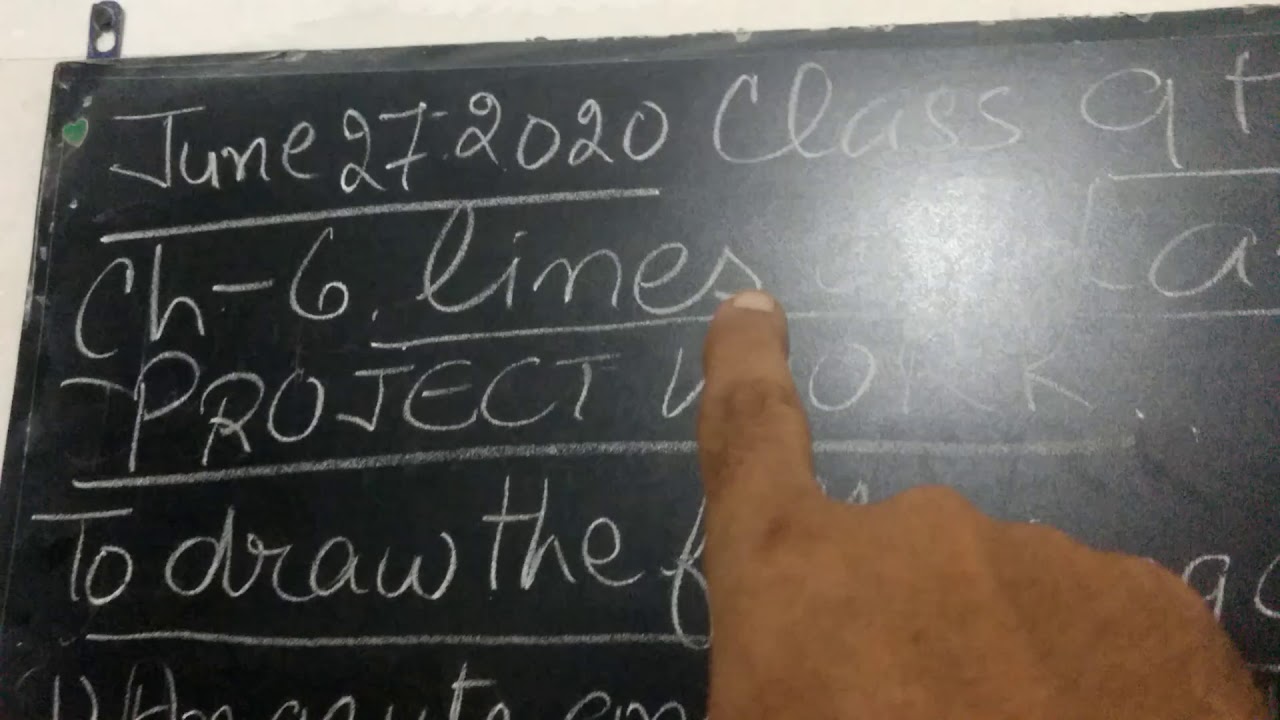 June 27.2020 Class 9t
Ch-6. lines and a
PROJECT WORK.
To draw the
1) An acute